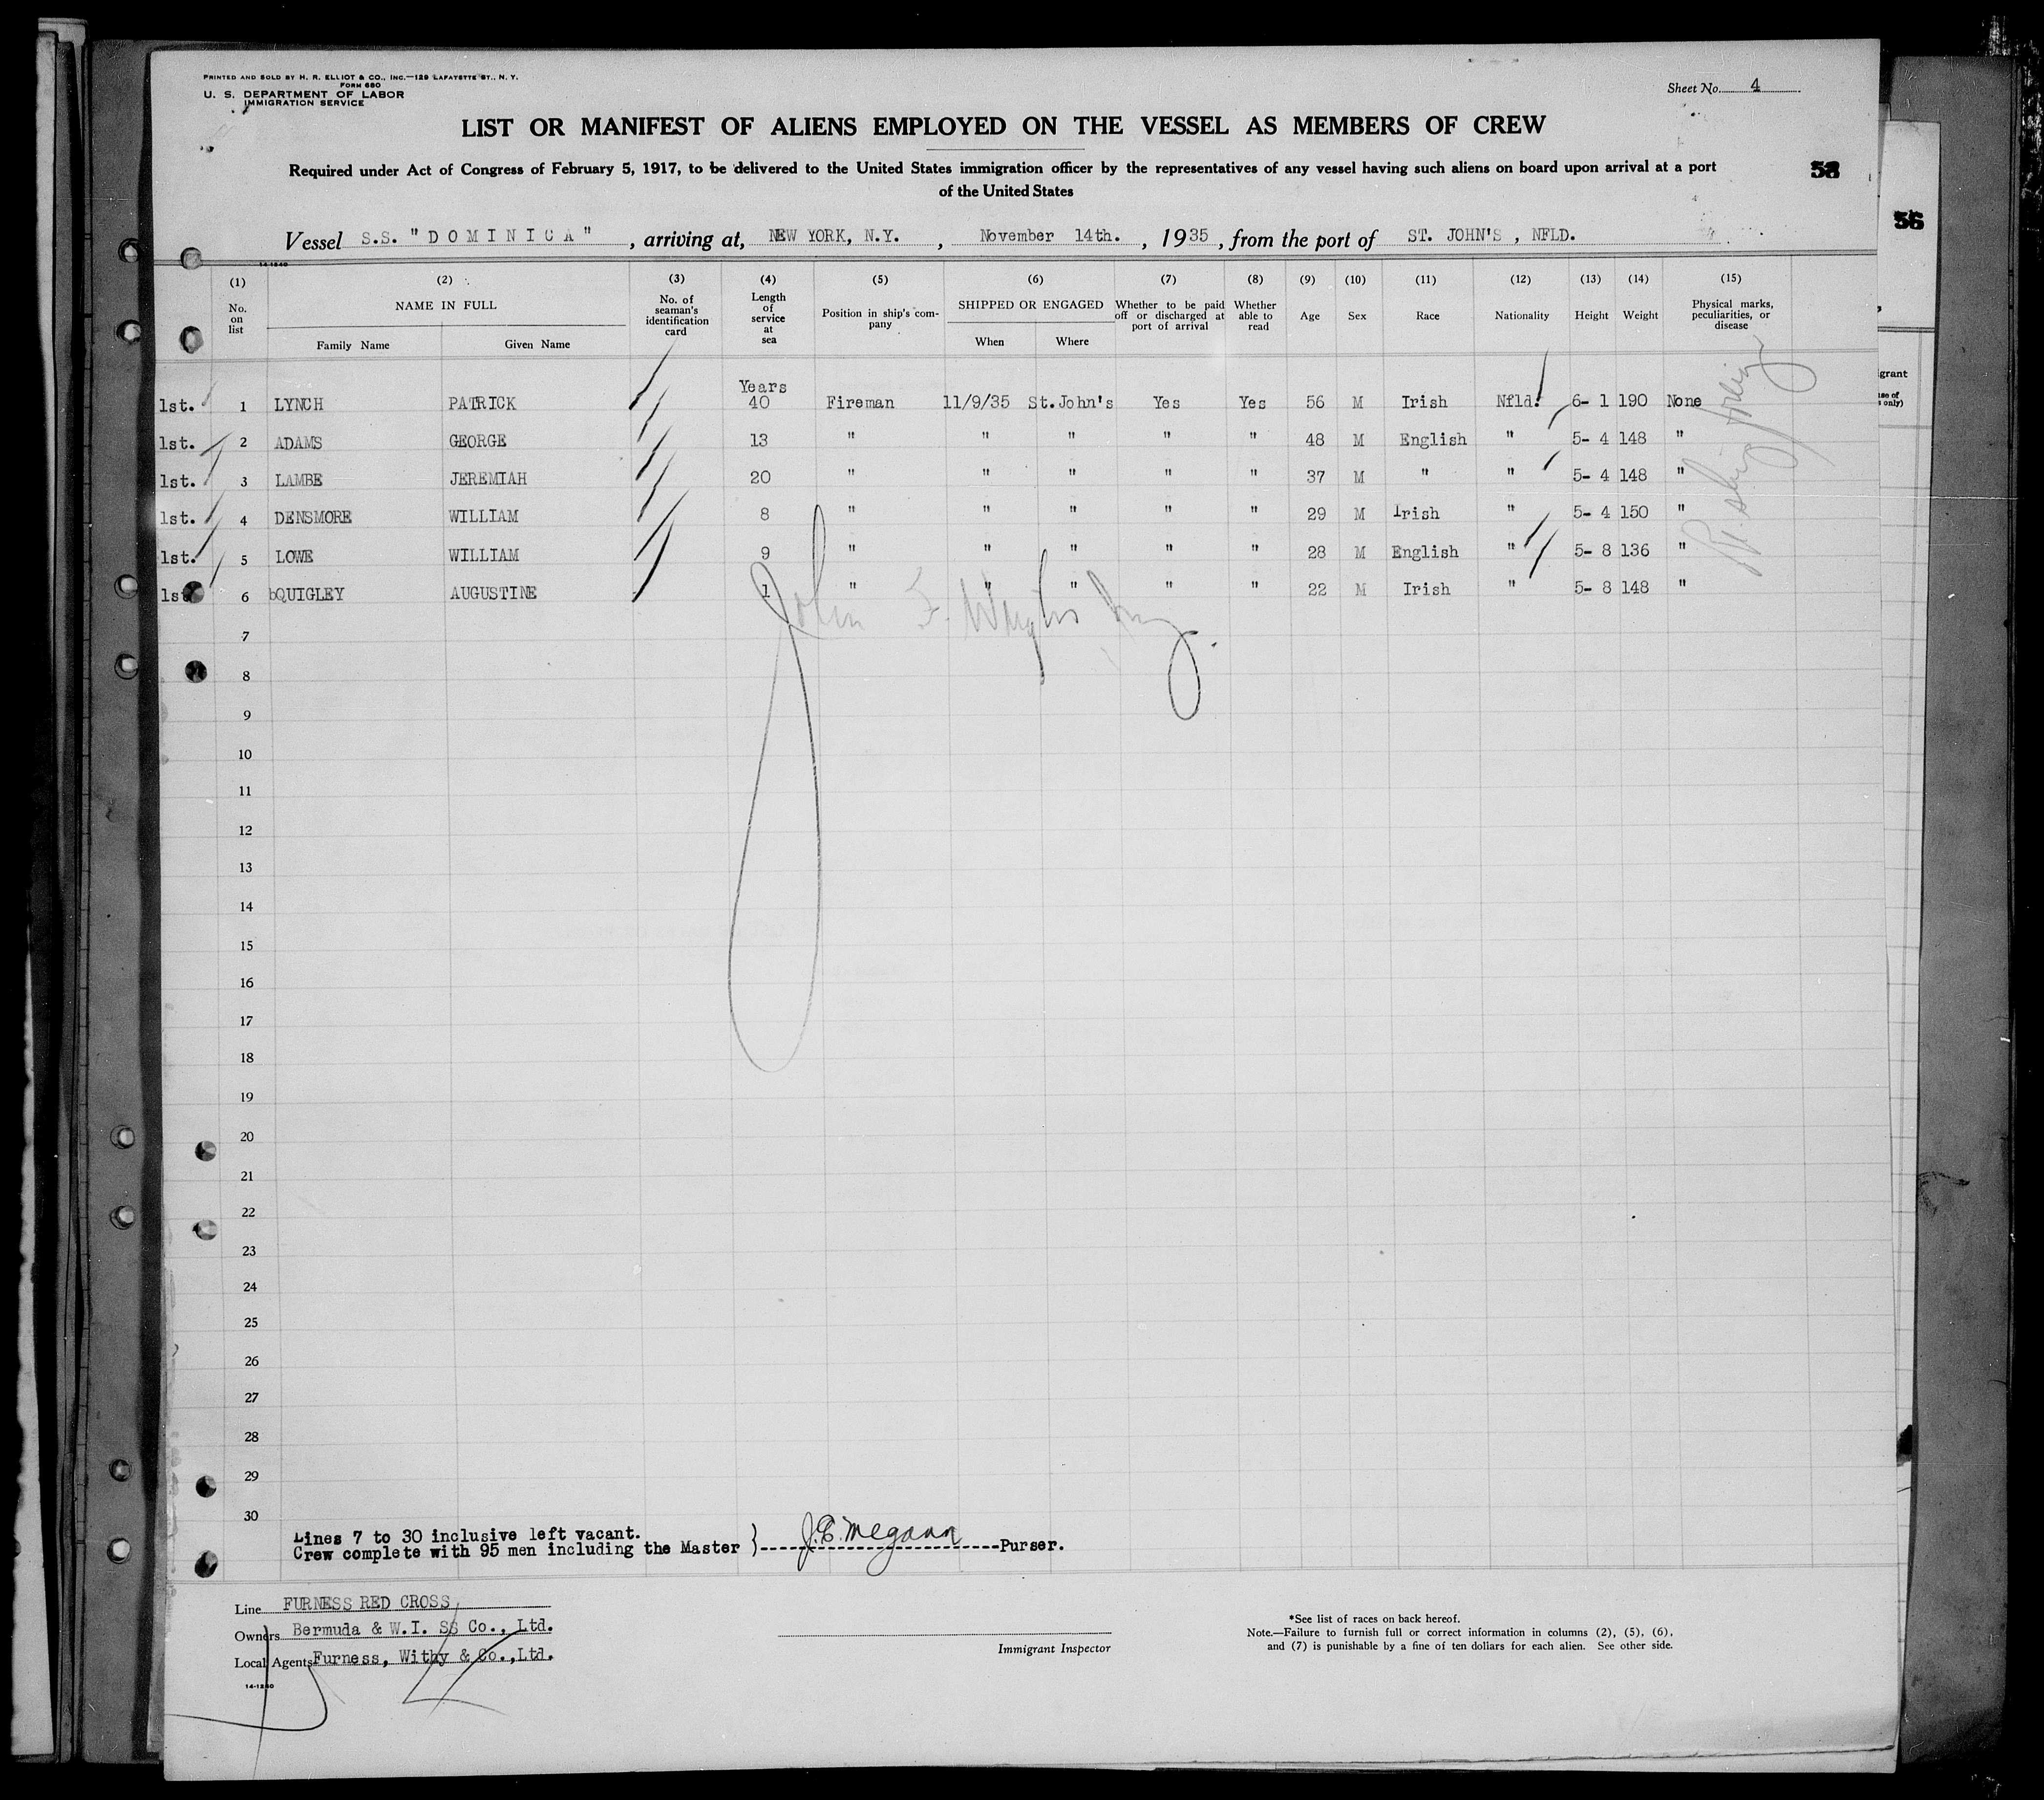 PRINTED AND SOLD BY H. R. ELLIOT & CO., INC.—129 LAFAYETTE ST., N. Y.
FORM 680
U. S. DEPARTMENT OF LABOR
IMMIGRATION SERVICE
Sheet No. 4
LIST OR MANIFEST OF ALIENS EMPLOYED ON THE VESSEL AS MEMBERS OF CREW
Required under Act of Congress of February 5, 1917, to be delivered to the United States immigration officer by the representatives of any vessel having such aliens on board upon arrival at a port
of the United States
58
56
Vessel S.S. "DOMINICA", arriving at, NEW YORK, N.Y., November 14th., 1935, from the port of ST. JOHN'S, NFLD.
14-1240
(1) (2) (3) (4) (5) (6) (7) (8) (9) (10) (11) (12) (13) (14) (15)
No. on list
NAME IN FULL
Family Name Given Name
No. of seaman's identification card
Length of service at sea
Position in ship's company
SHIPPED OR ENGAGED
When Where
Whether to be paid off or discharged at port of arrival
Whether able to read
Age Sex Race Nationality Height Weight
Physical marks, peculiarities, or disease
Years
1st. 1 LYNCH PATRICK 40 Fireman 11/9/35 St.John's Yes Yes 56 M Irish Nfld. 6- 1 190 None
1st. 2 ADAMS GEORGE 13 " " " " " 48 M English " 5- 4 148 "
1st. 3 LAMBE JEREMIAH 20 " " " " " 37 M " " 5- 4 148 "
1st. 4 DENSMORE WILLIAM 8 " " " " " 29 M Irish " 5- 4 150 "
1st. 5 LOWE WILLIAM 9 " " " " " 28 M English " 5- 8 136 "
1st 6 bQUIGLEY AUGUSTINE 1 " " " " " 22 M Irish " 5- 8 148 "
John F.
7
8
9
10
11
12
13
14
15
16
17
18
19
20
21
22
23
24
25
26
27
28
29
30
Lines 7 to 30 inclusive left vacant.
Crew complete with 95 men including the Master } J.E. Megann Purser.
Line FURNESS RED CROSS
Owners Bermuda & W.I. SS Co., Ltd.
Local Agents Furness, Withy & Co.,Ltd.
14-1240
Immigrant Inspector
*See list of races on back hereof.
Note.—Failure to furnish full or correct information in columns (2), (5), (6),
and (7) is punishable by a fine of ten dollars for each alien. See other side.
grant
use of
only)